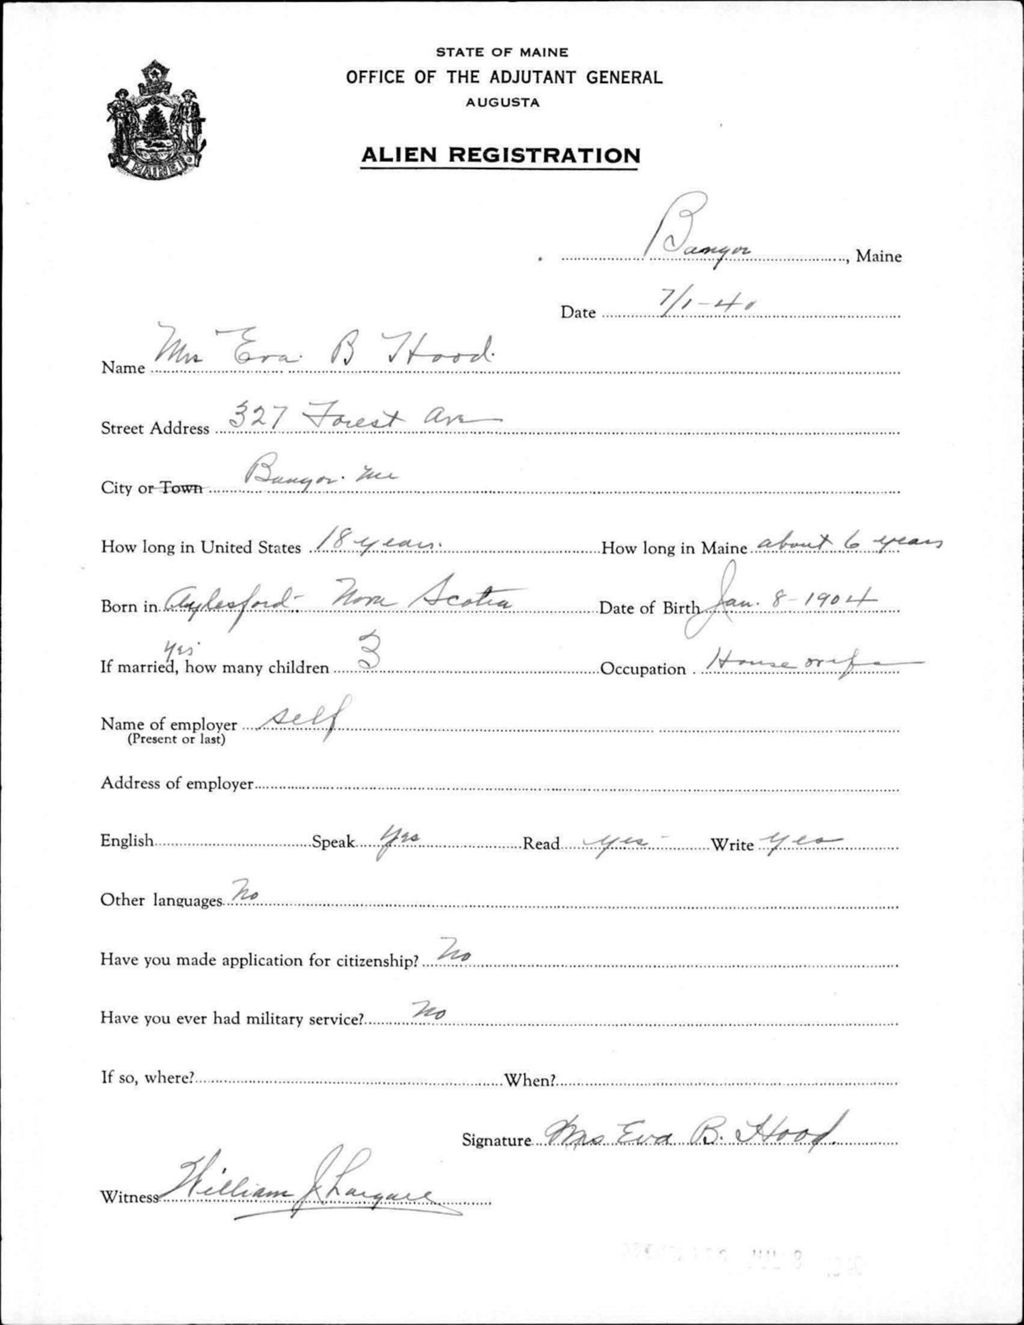 STATE OF MAINE
OFFICE OF THE ADJUTANT GENERAL
AUGUSTA
ALIEN REGISTRATION
MAINE
Bangor, Maine
Date 7/1-40
Name Mrs Eva B Hood.
Street Address 327 Forest Ave
City or Town Bangor. Me
How long in United States 18 years. How long in Maine about 6 years
Born in Aylesford - Nova Scotia Date of Birth Jan. 8-1904
yes
If married, how many children 3 Occupation House wife
Name of employer self
(Present or last)
Address of employer
English Speak yes Read yes Write yes
Other languages No
Have you made application for citizenship? No
Have you ever had military service? No
If so, where? When?
Signature Mrs Eva B. Hood.
Witness William J